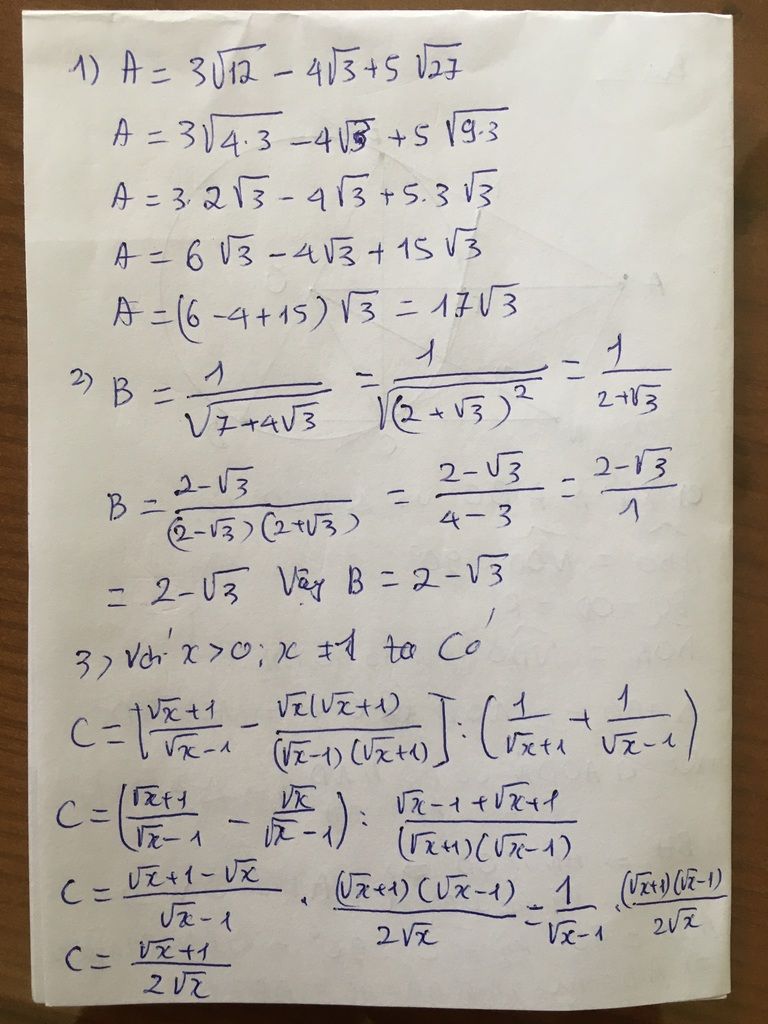 1) A = 3√12 - 4√3 + 5√27
A = 3√4.3 - 4√3 + 5√9.3
A = 3.2√3 - 4√3 + 5.3√3
A = 6√3 - 4√3 + 15√3
A = (6 - 4 + 15)√3 = 17√3
2) B = 1/√(7 + 4√3) = 1/√((2 + √3)²) = 1/(2 + √3)
B = (2 - √3)/((2 - √3)(2 + √3)) = (2 - √3)/(4 - 3) = (2 - √3)/1
= 2 - √3 Vậy B = 2 - √3
3) Với x > 0; x ≠ 1 ta có
C = [(√x + 1)/(√x - 1) - √x(√x + 1)/((√x - 1)(√x + 1))] : (1/(√x + 1) + 1/(√x - 1))
C = ((√x + 1)/(√x - 1) - √x/(√x - 1)) : (√x - 1 + √x + 1)/((√x + 1)(√x - 1))
C = (√x + 1 - √x)/(√x - 1) . ((√x + 1)(√x - 1))/(2√x) = 1/(√x - 1) . ((√x + 1)(√x - 1))/(2√x)
C = (√x + 1)/(2√x)